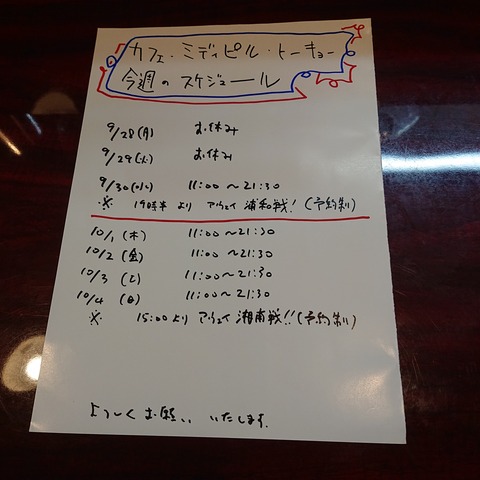 カフェ・ミディピル・トーキョー
今週のスケジュール
9/28(月) お休み
9/29(火) お休み
9/30(水) 11:00～21:30
※ 19時半より アウェイ 浦和戦!(予約制)
10/1(木) 11:00～21:30
10/2(金) 11:00～21:30
10/3(土) 11:00～21:30
10/4(日) 11:00～21:30
※ 15:00より アウェイ 湘南戦!!(予約制)
よろしくお願いいたします.